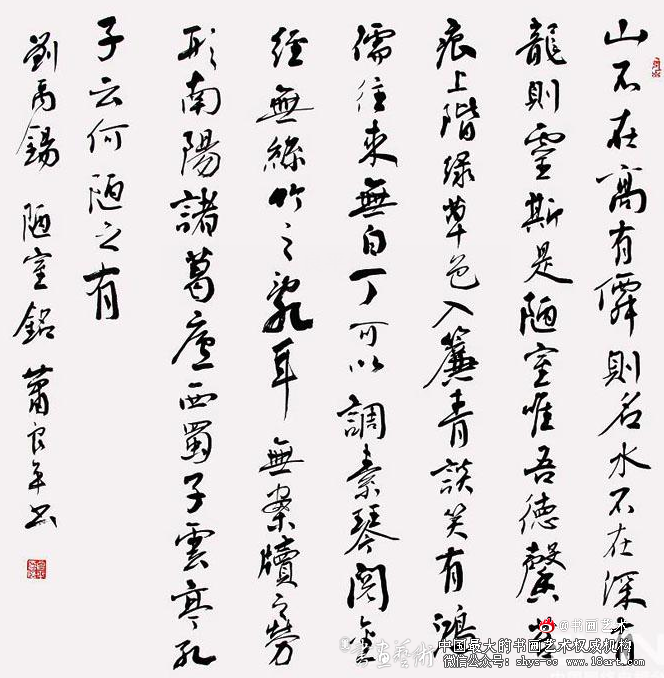 山不在高有僊則名水不在深有
龍則靈斯是陋室唯吾德馨苔
痕上階緑草色入簾青談笑有鴻
儒往來無白丁可以調素琴閱金
經無絲竹之亂耳無案牘之勞
形南陽諸葛廬西蜀子雲亭孔
子云何陋之有
劉禹錫 陋室銘 蕭良平書
@书画艺术
書畫藝術
中国最大的书画艺术权威机构
微信公众号：shys-cc www.18art.com